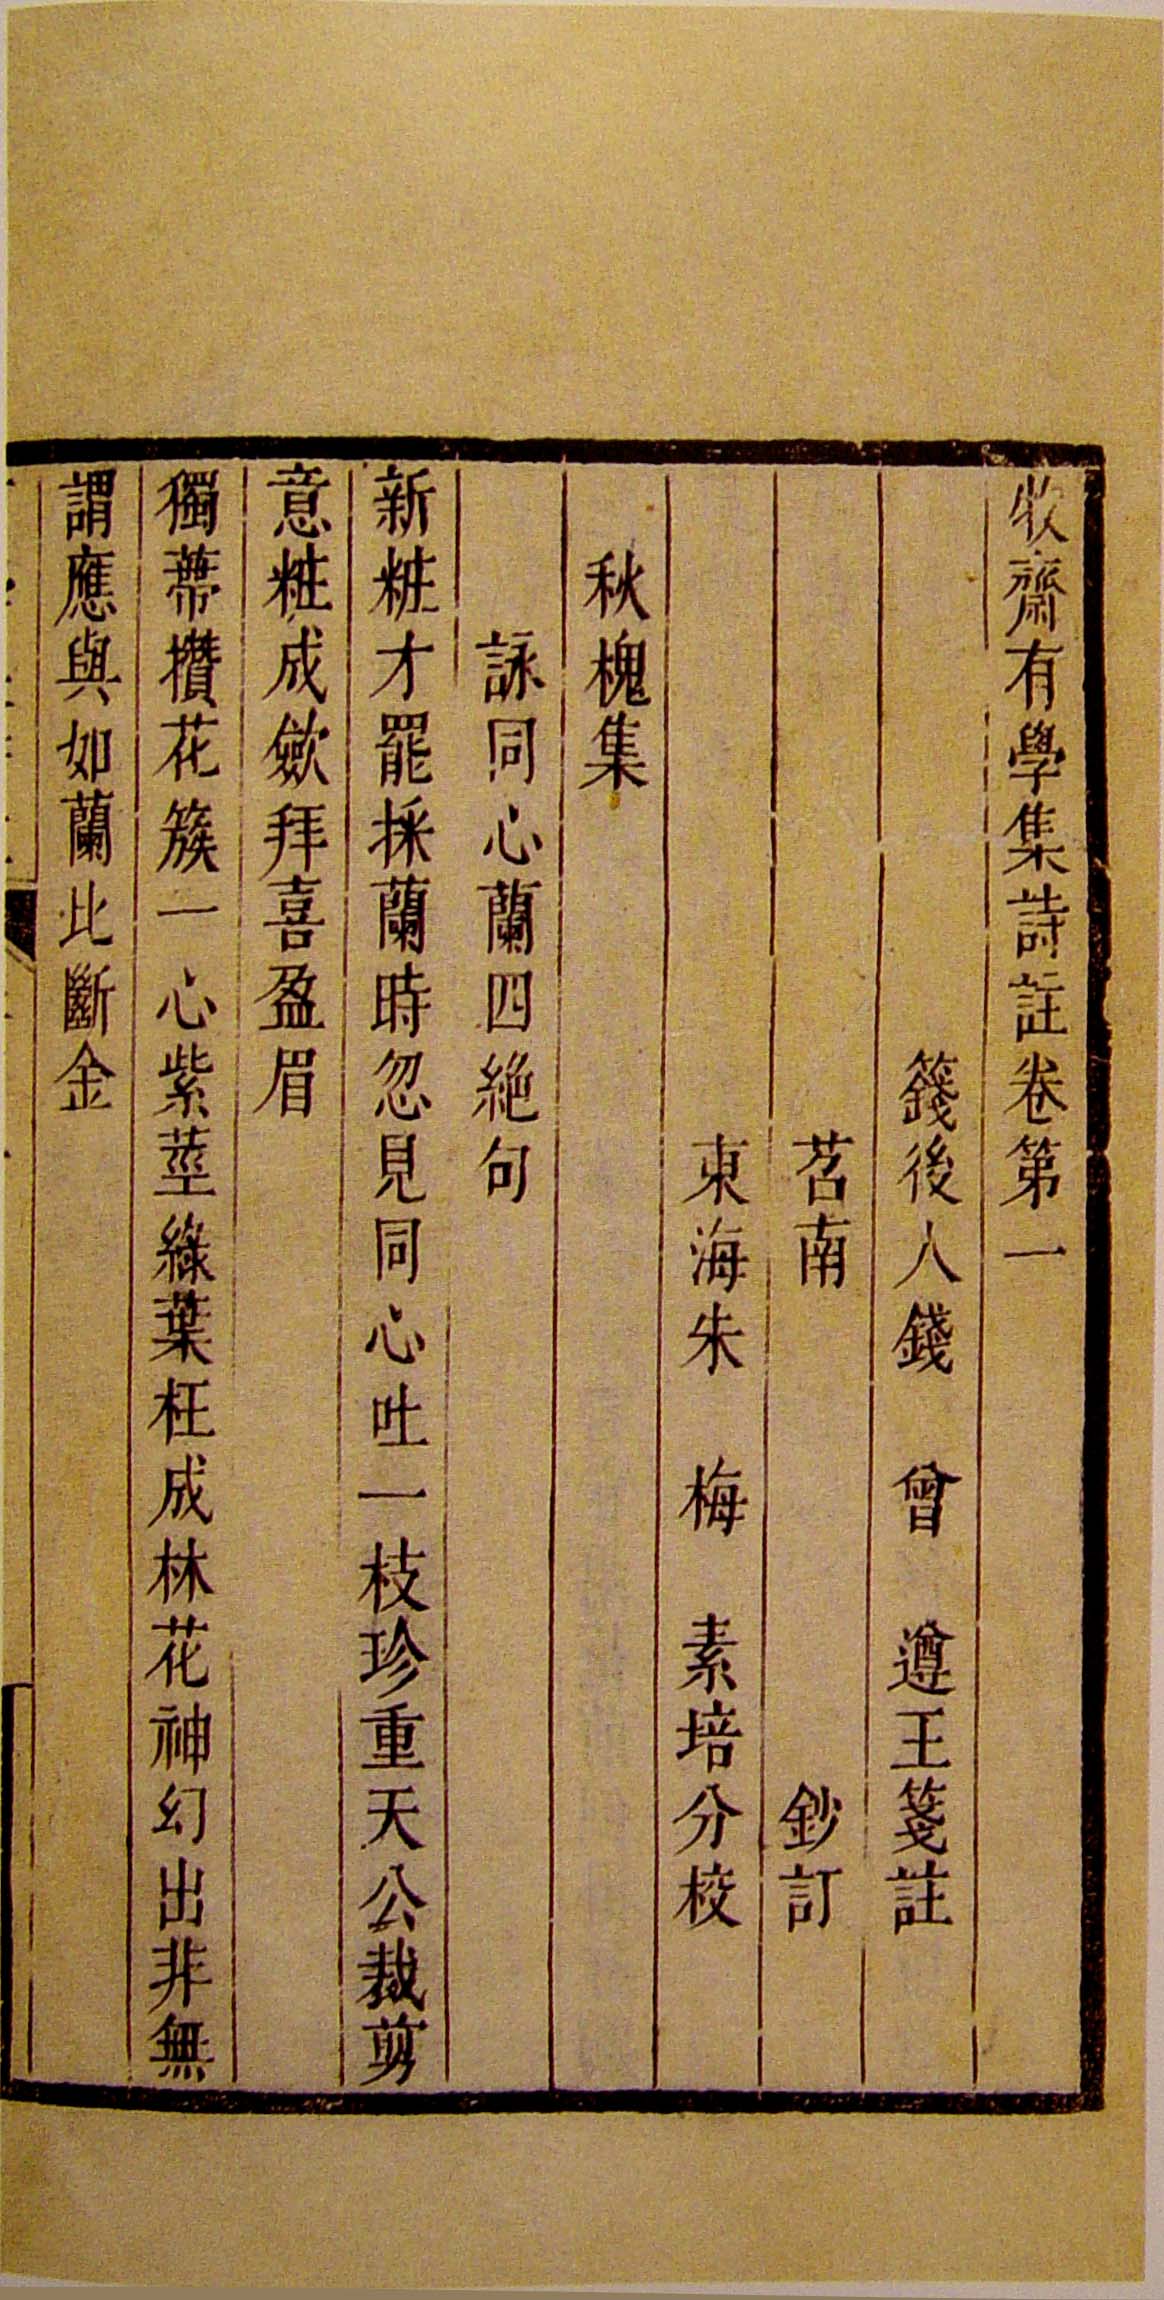 牧齋有學集詩註卷第一
籛後人錢 曾 遵王箋註
苕南 鈔訂
東海朱 梅 素培分校
秋槐集
詠同心蘭四絶句
新粧才罷採蘭時忽見同心吐一枝珍重天公裁剪
意粧成歛拜喜盈眉
獨蔕攢花簇一心紫莖綠葉枉成林花神幻出非無
謂應與如蘭比斷金